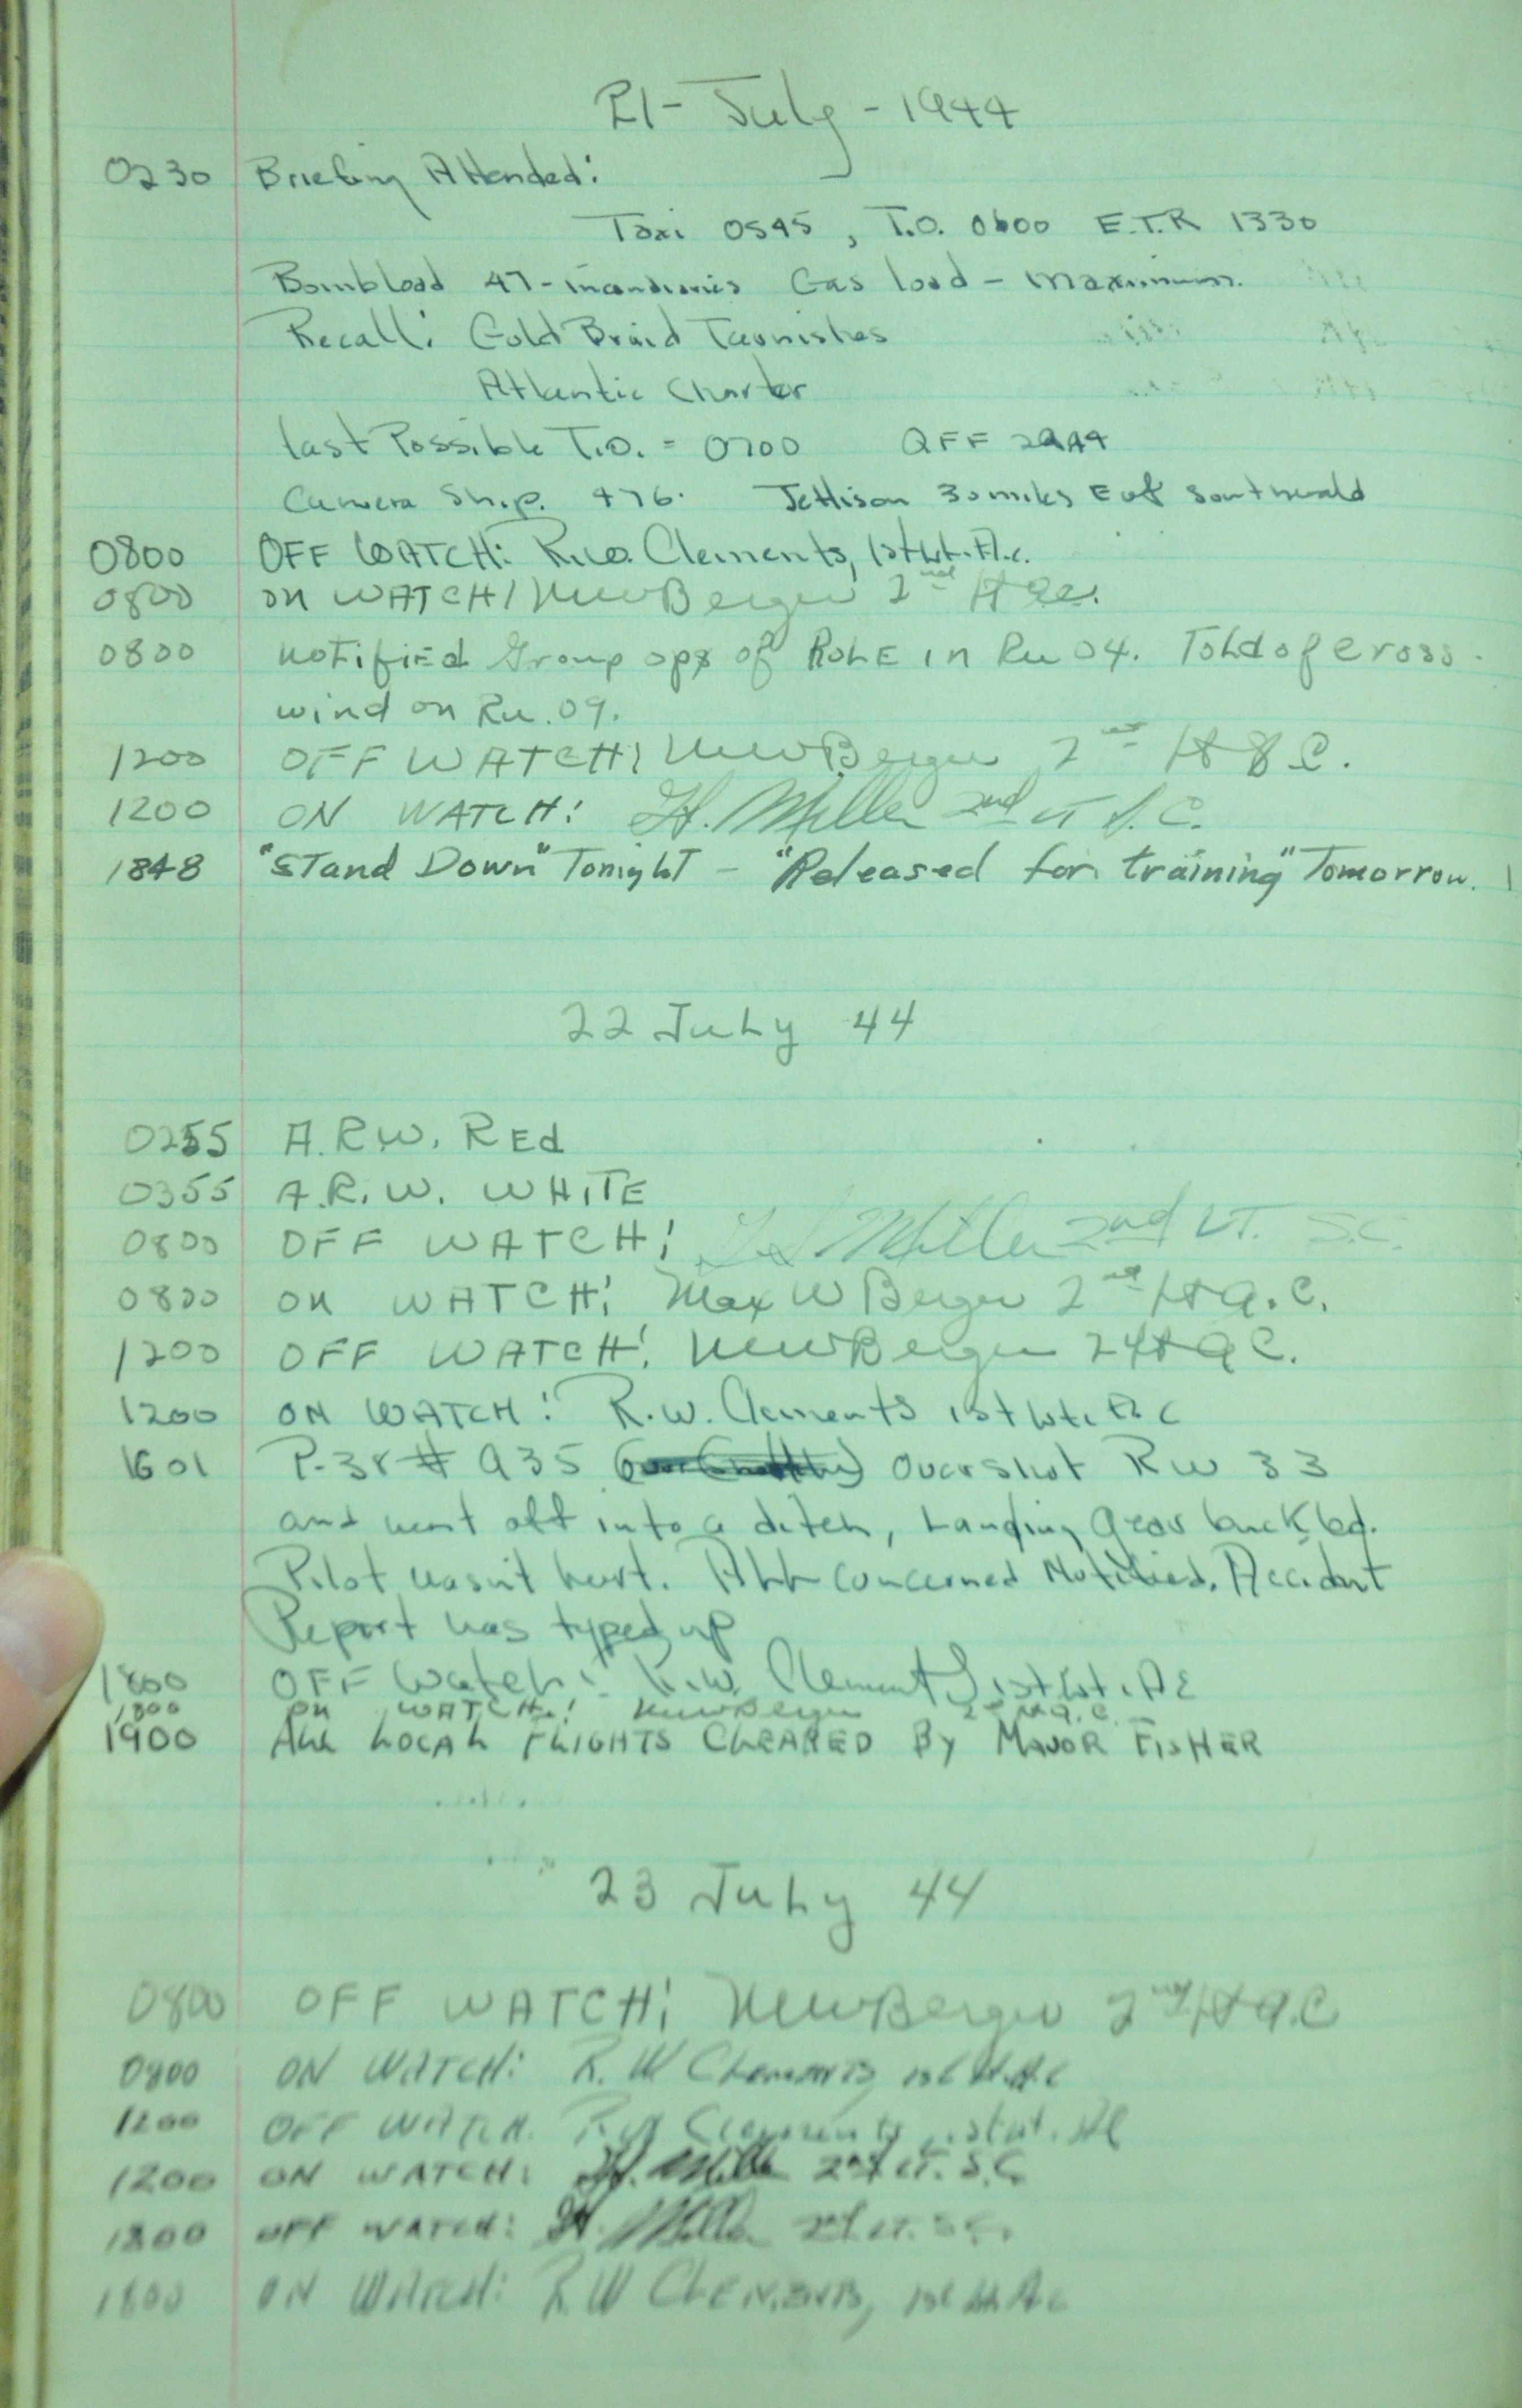 21- July - 1944
0230 Briefing Attended:
Taxi 0545, T.O. 0600 E.T.R 1330
Bombload 47-incendiaries Gas load - maximum.
Recall: Gold Braid Tarnishes
Atlantic Charter
Last Possible T.O. = 0700 QFF
Camera Ship. 476. Jettison 30 miles E of Southwold
0800 OFF WATCH: R.W. Clements, 1st Lt. A.C.
0800 on WATCH! MWBerger 2nd Lt A.C.
0800 notified Group ops of HOLE in Ru 04. Told of cross
wind on Ru. 09.
1200 OFF WATCH! MWBerger 2nd Lt A.C.
1200 ON WATCH: H. Miller 2nd LT S.C.
1848 "Stand Down" Tonight - "Released for training" Tomorrow.
22 July 44
0255 A.R.W. REd
0355 A.R.W. WHITE
0800 OFF WATCH! H. Miller 2nd LT. S.C.
0800 on WATCH! Max W Berger 2nd Lt A.C.
1200 OFF WATCH! MWBerger 2d Lt A C.
1200 ON WATCH: R.W. Clements 1st Lt. A C
1601 P-38 # 935 Overshot RW 33
and went off into a ditch, Landing gear buckled.
Pilot wasn't hurt. ALL concerned Notified. Accident
Report was typed up
1800 OFF Watch: R.W. Clements, 1st Lt. AC
1800 on WATCH! MWBerger 2nd Lt A.C.
1900 ALL LOCAL FLIGHTS CLEARED By MAJOR FISHER
23 July 44
0800 OFF WATCH! MWBerger 2nd Lt A.C
0800 ON WATCH: R. W Clements, 1st Lt. A C
1200 OFF WATCH. R W Clements, 1st Lt. AC
1200 ON WATCH: H. Miller 2nd LT. S.C.
1800 OFF WATCH: H. Miller 2nd LT. S.C.
1800 ON WATCH: R. W Clements, 1st Lt AC